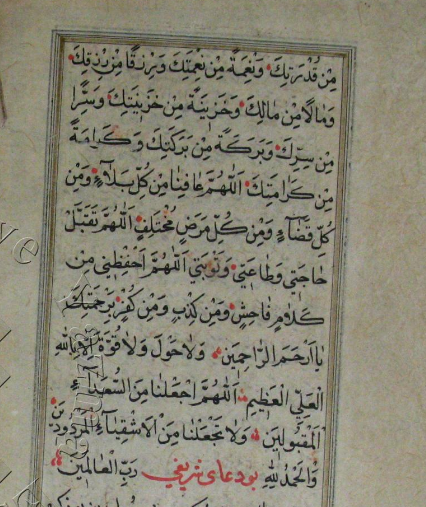 مِنْ قُدْرَتِكَ وَنِعْمَةً مِنْ نِعْمَتِكَ وَرِزْقًا مِنْ رِزْقِكَ
وَمَالًا مِنْ مَالِكَ وَخَزِينَةً مِنْ خَزِينَتِكَ وَسِرًّا
مِنْ سِرِّكَ وَبَرَكَةً مِنْ بَرَكَتِكَ وَكَرَامَةً
مِنْ كَرَامَتِكَ اَللّٰهُمَّ عَافِنَا مِنْ كُلِّ بَلَاءٍ وَمِنْ
كُلِّ قَضَاءٍ وَمِنْ كُلِّ مَرَضٍ مُخْتَلِفٍ اَللّٰهُمَّ تَقَبَّلْ
حَاجَتِي وَطَاعَتِي وَتَوْبَتِي اَللّٰهُمَّ احْفَظْنِي مِنْ
كَلَامٍ فَاحِشٍ وَمِنْ كِذْبٍ وَمِنْ كُفْرٍ بِرَحْمَتِكَ
يَا اَرْحَمَ الرَّاحِمِينَ وَلَا حَوْلَ وَلَا قُوَّةَ اِلَّا بِاللّٰهِ
الْعَلِيِّ الْعَظِيمِ اَللّٰهُمَّ اجْعَلْنَا مِنَ السُّعَدَاءِ
الْمَقْبُولِينَ وَلَا تَجْعَلْنَا مِنَ الْاَشْقِيَاءِ الْمَرْدُودِينَ
وَالْحَمْدُ لِلّٰهِ رَبِّ الْعَالَمِينَ بو دعاى شريفى